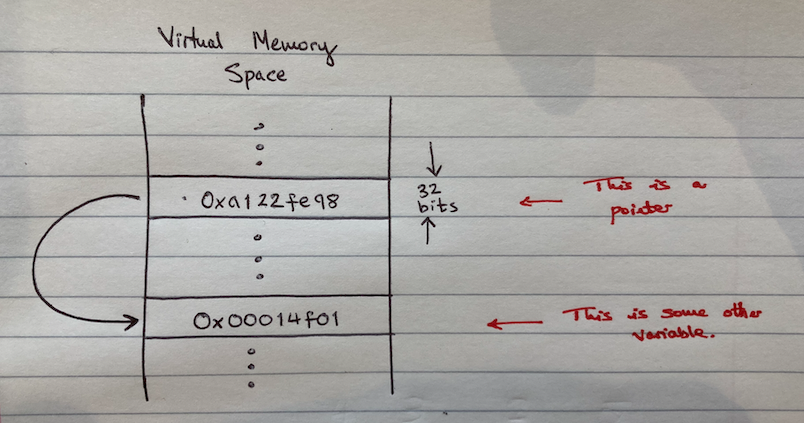 Virtual Memory
Space
0xa122fe98
32
bits
This is a
pointer
0x00014f01
This is some other
variable.